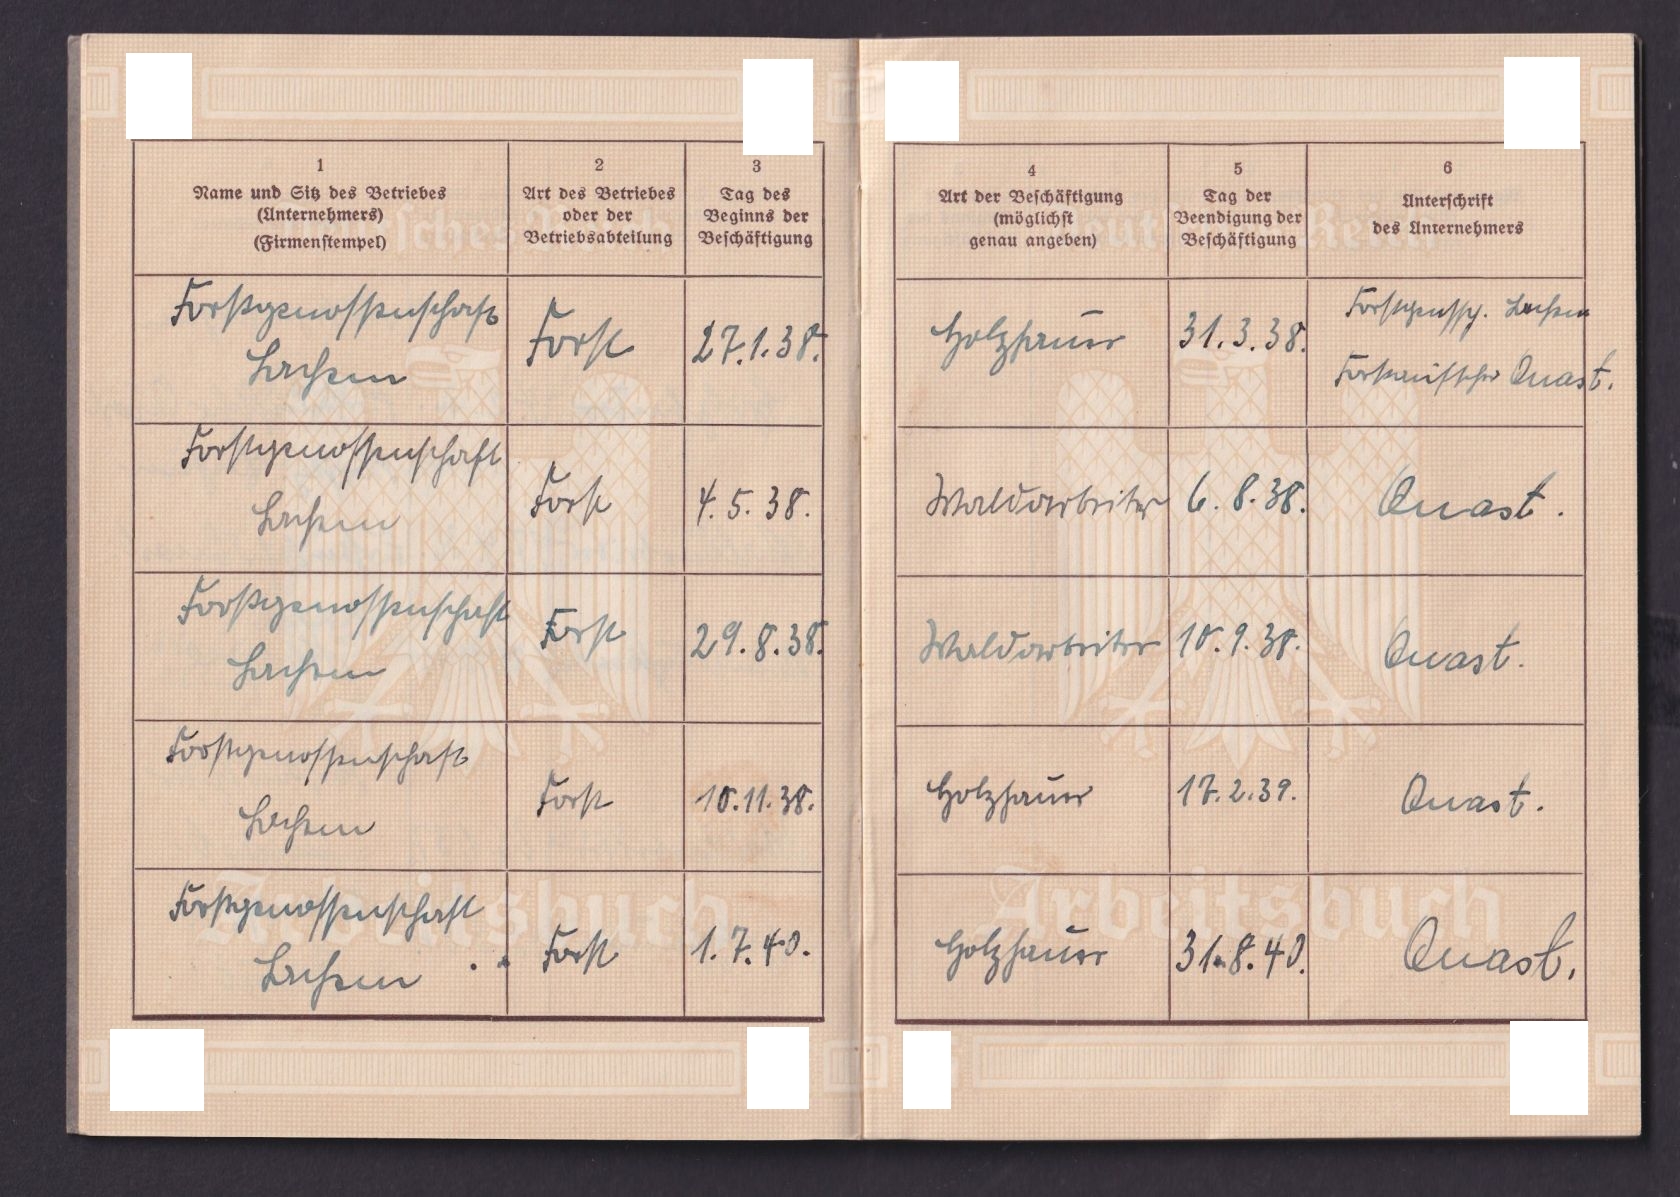 1
Name und Sitz des Betriebes
(Unternehmers)
(Firmenstempel)
2
Art des Betriebes
oder der
Betriebsabteilung
3
Tag des
Beginns der
Beschäftigung
4
Art der Beschäftigung
(möglichst
genau angeben)
5
Tag der
Beendigung der
Beschäftigung
6
Unterschrift
des Unternehmers
Forstgenossenschaft
Lachem
Forst
27.1.38.
Holzhauer
31.3.38.
Forstgenssch. Lachem
Quast.
Forstgenossenschaft
Lachem
Forst
4.5.38.
Waldarbeiter
6.8.38.
Quast.
Forstgenossenschaft
Lachem
Forst
29.8.38.
Waldarbeiter
10.9.38.
Quast.
Forstgenossenschaft
Lachem
Forst
10.11.38.
Holzhauer
17.2.39.
Quast.
Forstgenossenschaft
Lachem
Forst
1.7.40.
Holzhauer
31.8.40.
Quast.
Deutsches Reich
Arbeitsbuch
Deutsches Reich
Arbeitsbuch